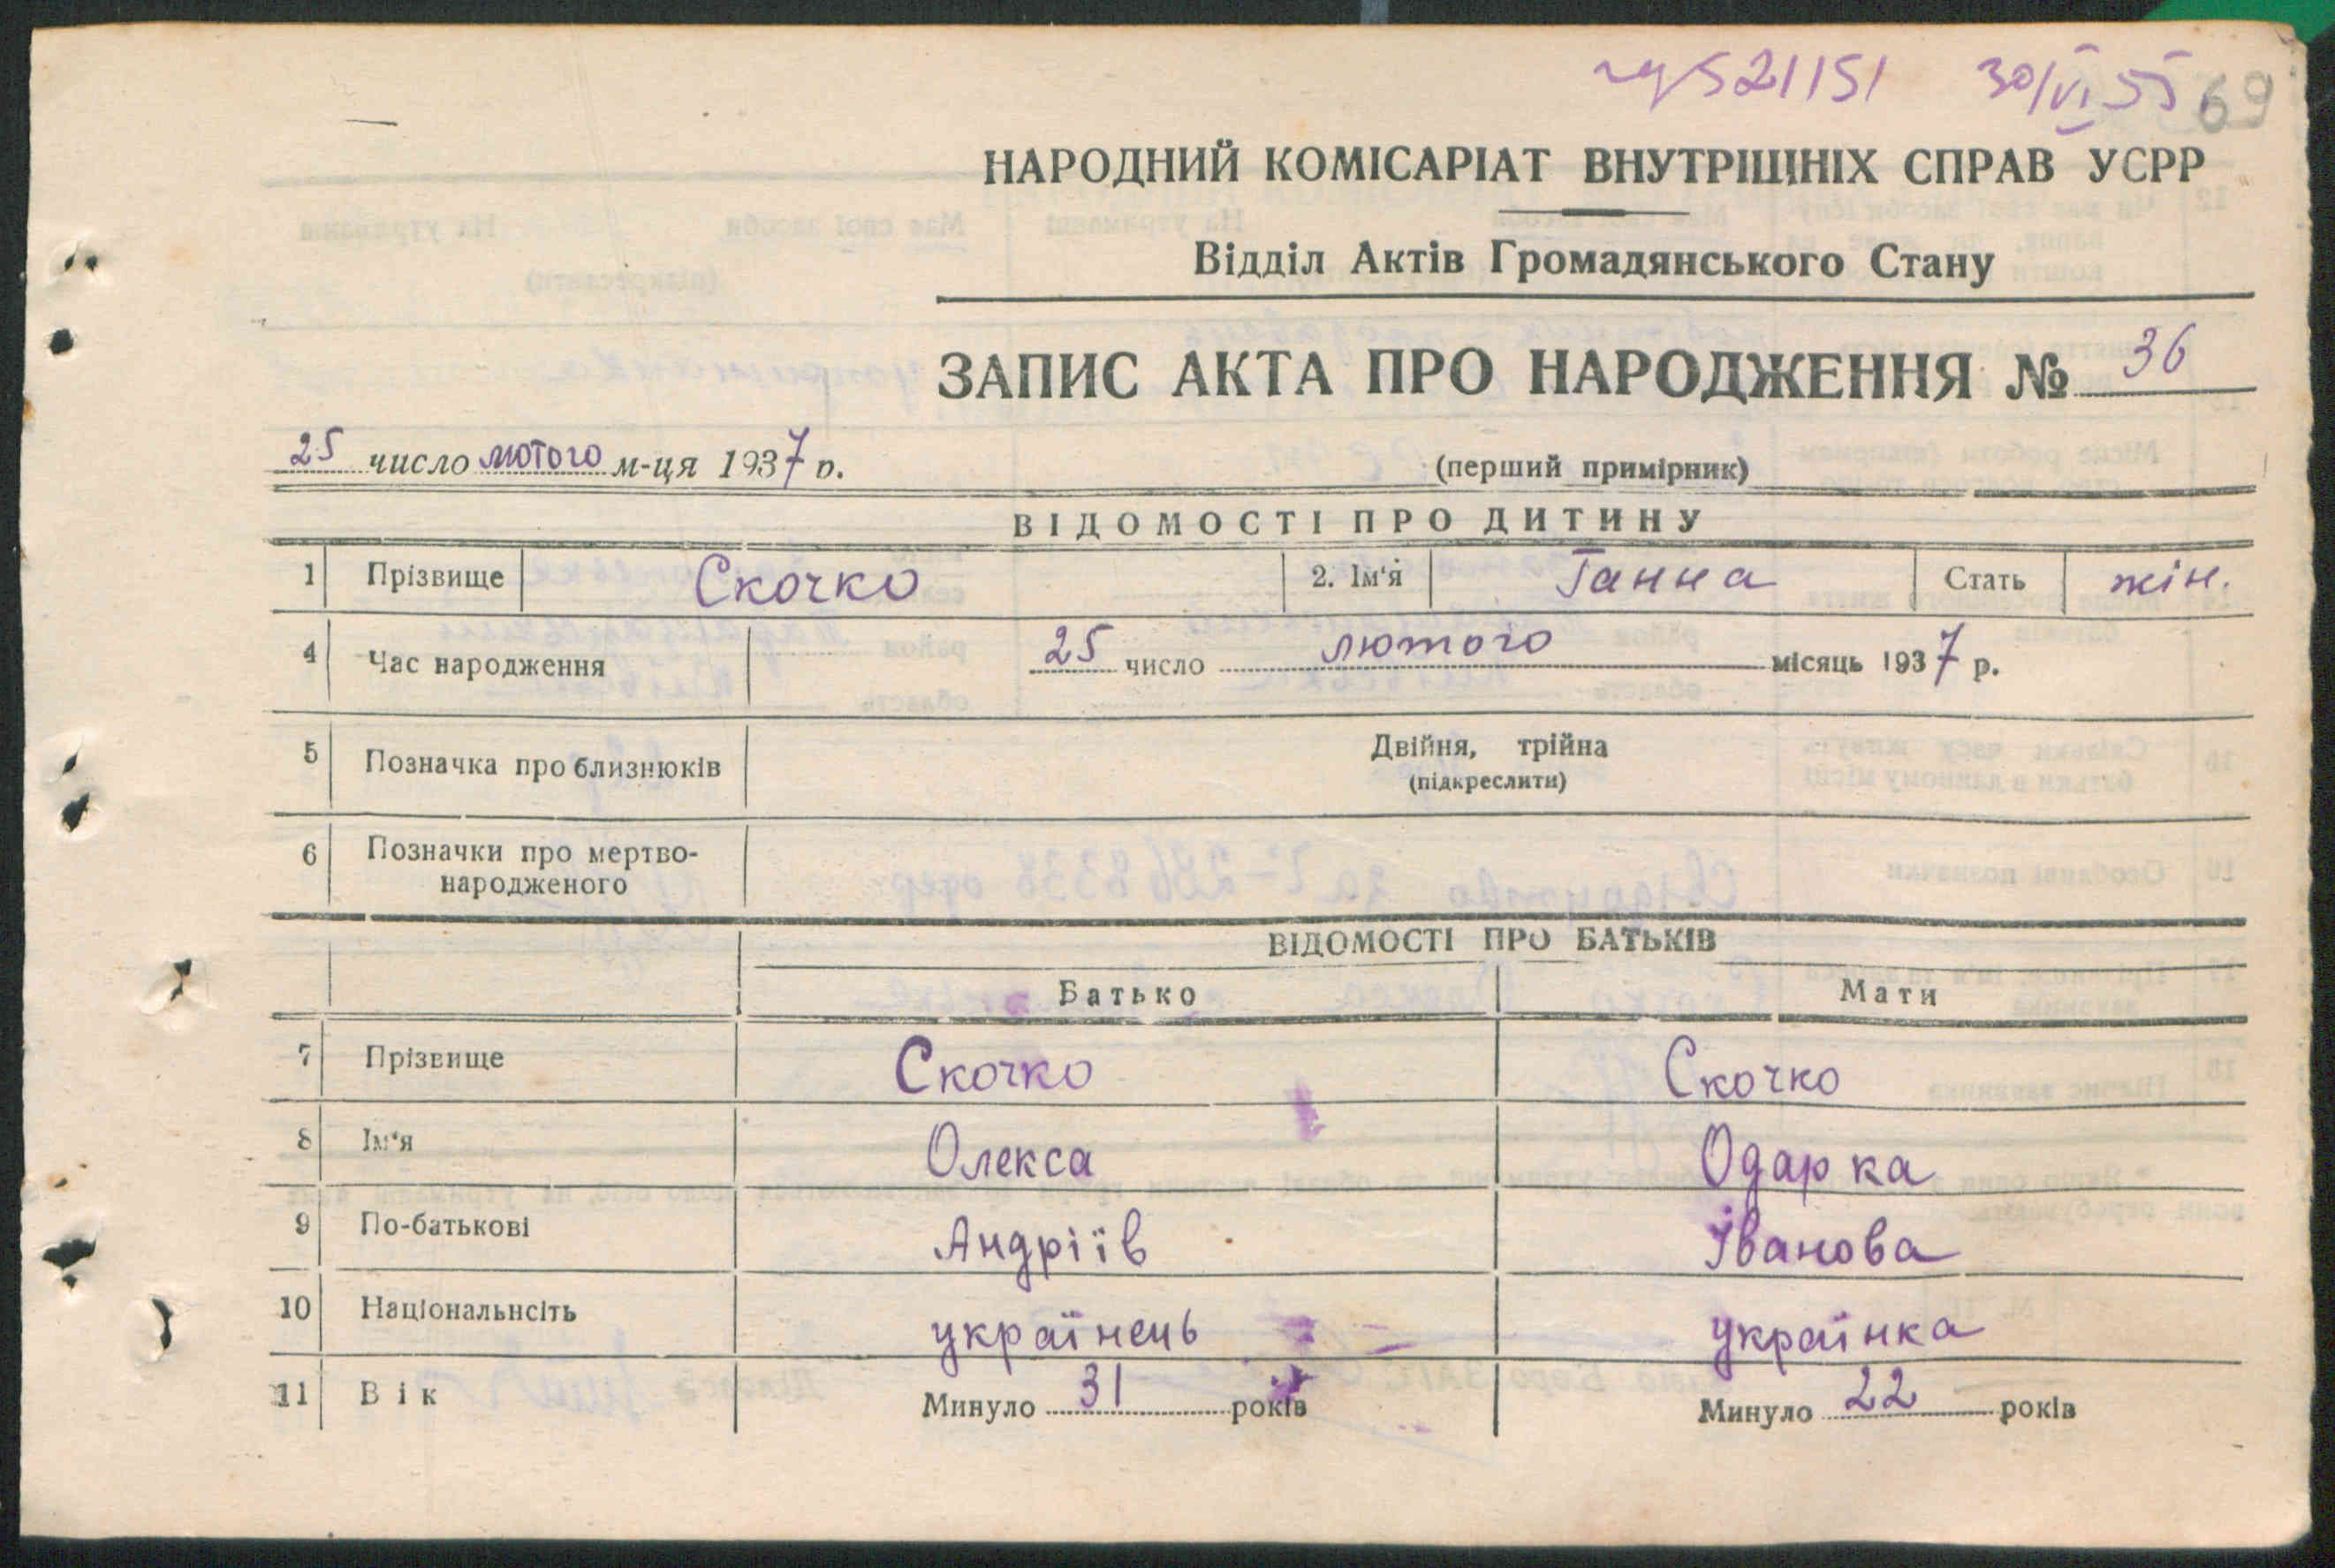 521151 30/VI 55 69
НАРОДНИЙ КОМІСАРІАТ ВНУТРІШНІХ СПРАВ УСРР
Відділ Актів Громадянського Стану
ЗАПИС АКТА ПРО НАРОДЖЕННЯ № 36
25 число лютого м-ця 1937 р.
(перший примірник)
ВІДОМОСТІ ПРО ДИТИНУ
1 Прізвище Скочко 2. Ім'я Ганна Стать жін.
4 Час народження 25 число лютого місяць 1937 р.
5 Позначка про близнюків Двійня, трійна
(підкреслити)
6 Позначки про мертво-
народженого
ВІДОМОСТІ ПРО БАТЬКІВ
Батько Мати
7 Прізвище Скочко Скочко
8 Ім'я Олекса Одарка
9 По-батькові Андріїв Іванова
10 Національнсіть українець українка
11 Вік Минуло 31 років Минуло 22 років